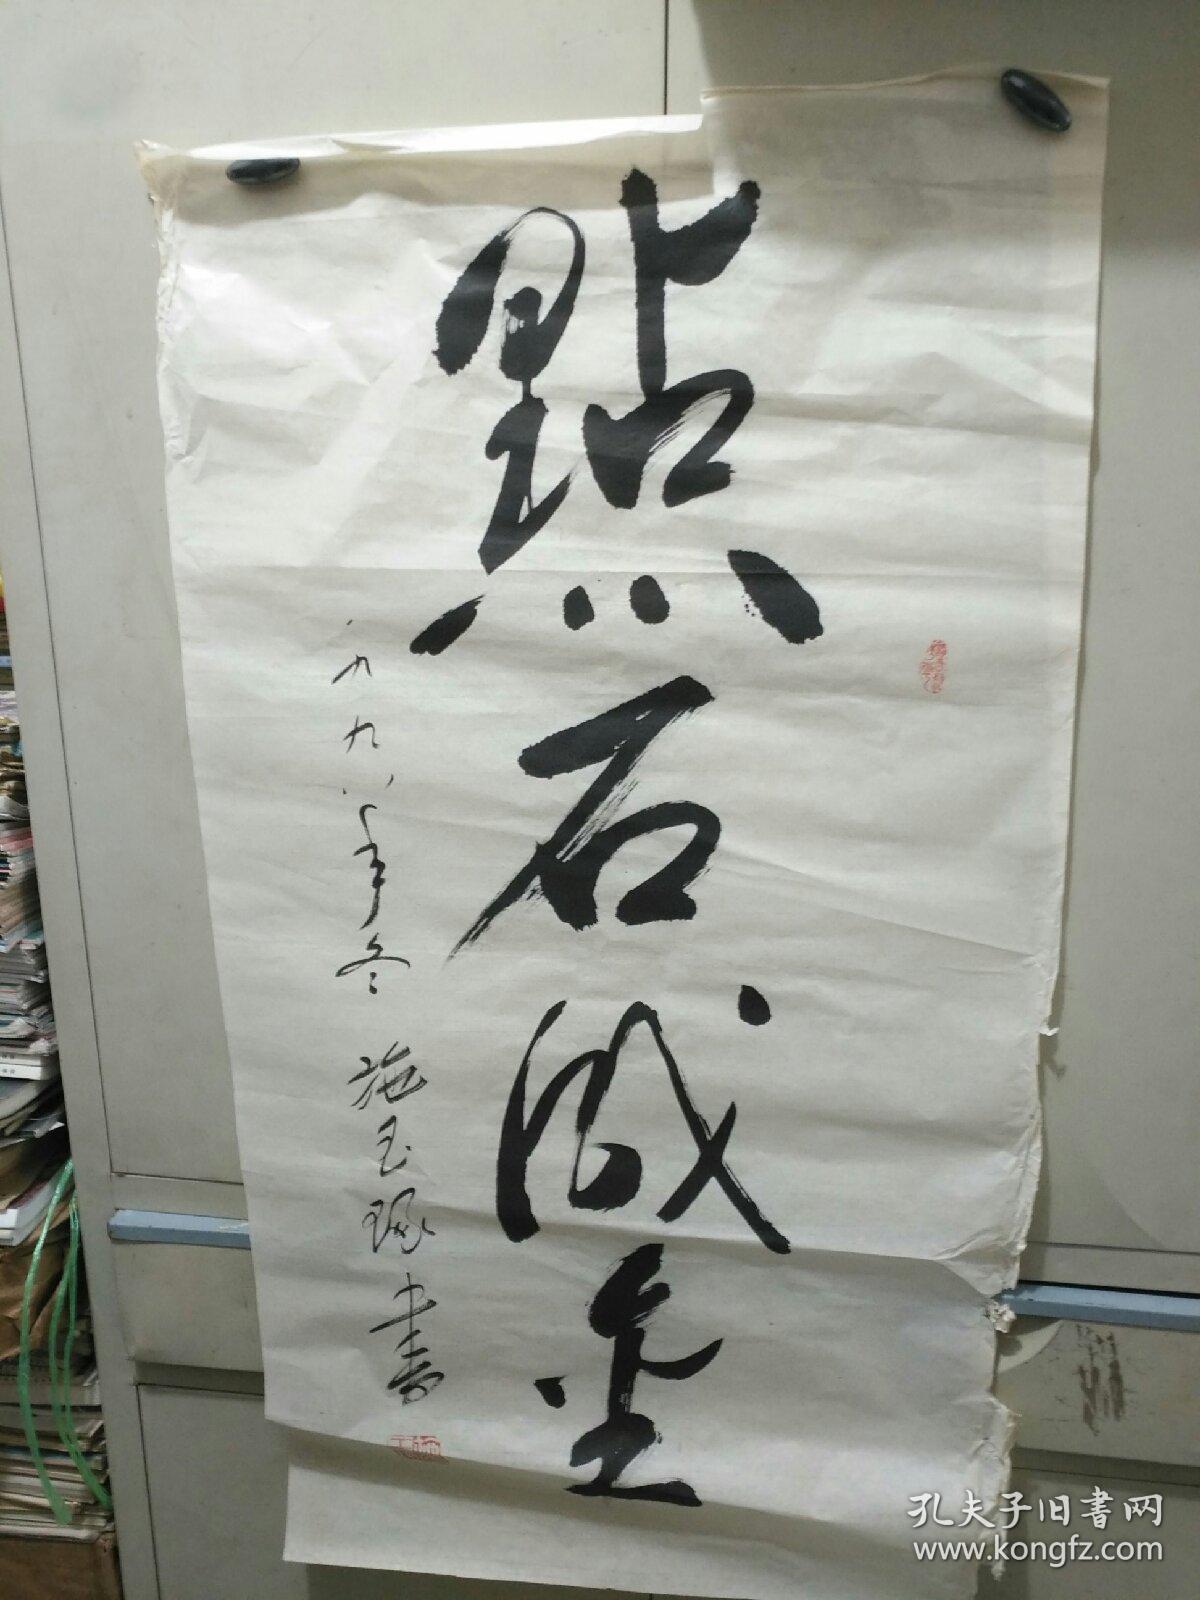 點石成金
一九九八年冬 施玉琢書
孔夫子旧書网
www.kongfz.com